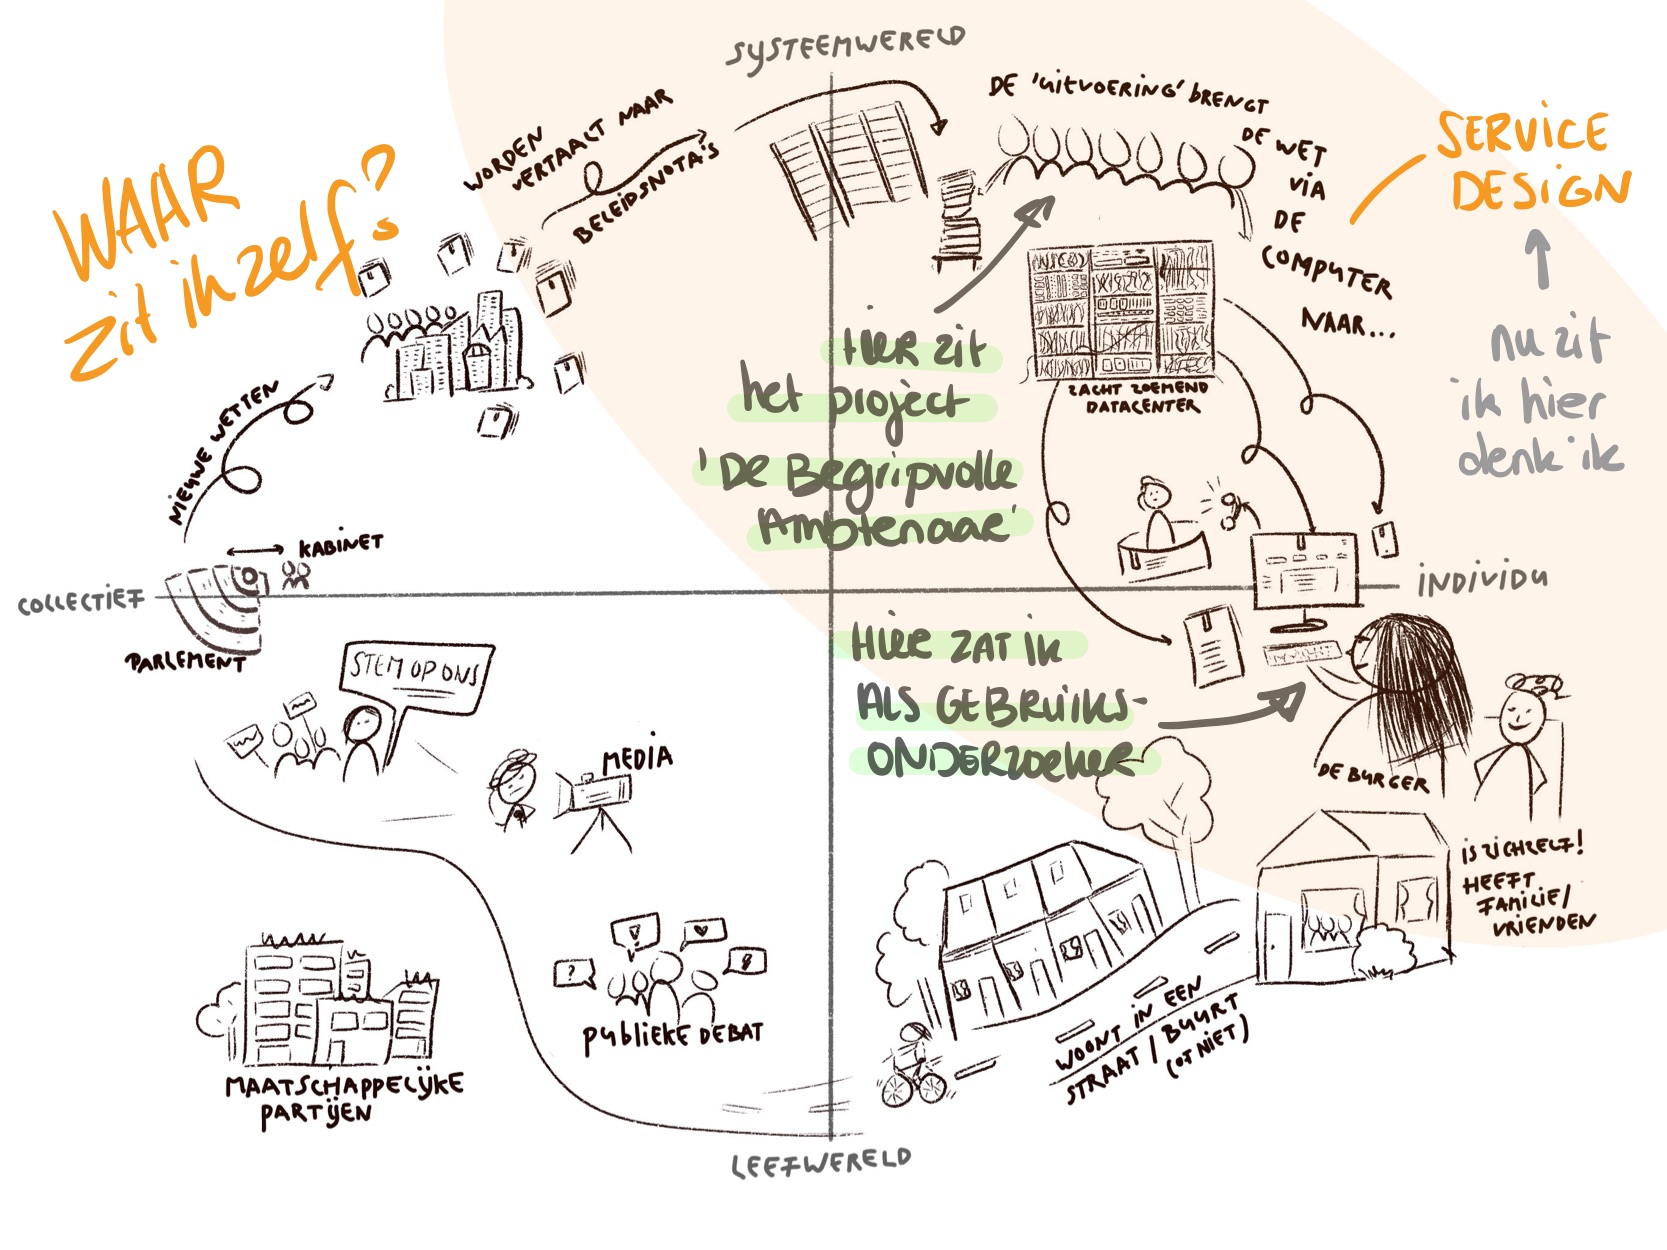 SYSTEEMWERELD
WAAR
zit ikzelf?
WORDEN
VERTAALT NAAR
BELEIDSNOTA'S
DE 'UITVOERING' BRENGT
DE WET
VIA
DE
COMPUTER
NAAR...
SERVICE
DESIGN
nu zit
ik hier
denk ik
HIER zit
het project
'De Begripvolle
Ambtenaar'
ZACHT ZOEMEND
DATACENTER
NIEUWE WETTEN
KABINET
COLLECTIEF
INDIVIDU
PARLEMENT
STEM OP ONS
MEDIA
HIER ZAT ik
ALS GEBRUIKS-
ONDERZOEKER
DE BURGER
IS ZICHZELF!
HEEFT
FAMILIE/
VRIENDEN
PUBLIEKE DEBAT
WOONT IN EEN
STRAAT / BUURT
(OF NIET)
MAATSCHAPPELIJKE
PARTIJEN
LEEFWERELD